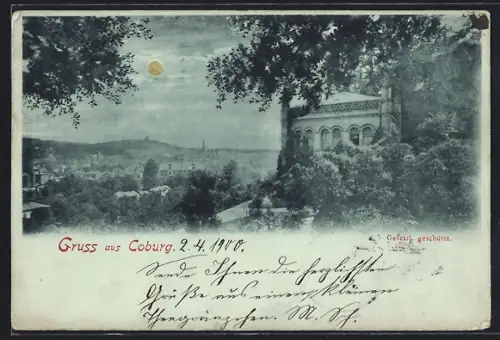 Gruss aus Coburg. 2.4.1900.
Gesetzl. geschützt.
Sende Ihnen die herzlichsten
Grüße aus einem kleinen
M. Sch.